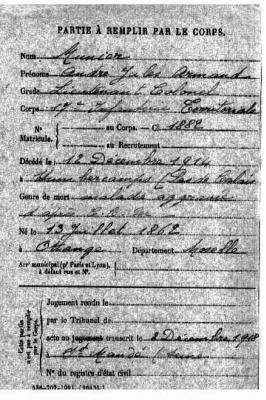 PARTIE À REMPLIR PAR LE CORPS.
Nom Munier
Prénoms André Jules Armand
Grade Lieutenant Colonel
Corps 17e Infanterie Territoriale
N° Matricule. au Corps. — Cl. 1882
au Recrutement
Décédé le 12 Décembre 1914
à (Pas de Calais
Genre de mort maladie
Né le 13 Juillet 1862
à Département Moselle
Arr. municipal (pr Paris et Lyon), à défaut rue et N°.
Cette partie n'est pas à remplir par le Corps.
Jugement rendu le
par le Tribunal de
acte ou jugement transcrit le 2 Décembre 1918
à St Mandé (Seine
N° du registre d'état civil